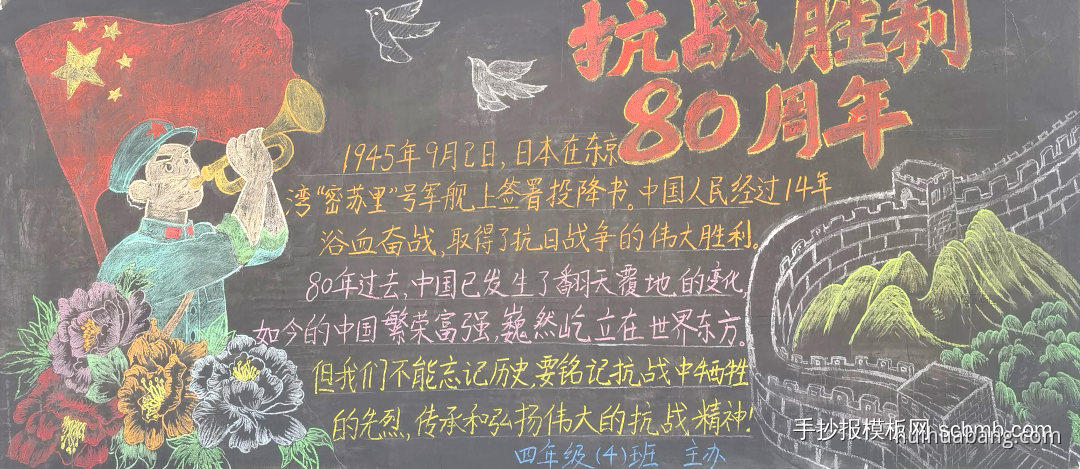 抗战胜利
80周年
1945年9月2日,日本在东京
湾“密苏里”号军舰上签署投降书。中国人民经过14年
浴血奋战,取得了抗日战争的伟大胜利。
80年过去,中国已发生了翻天覆地的变化
如今的中国繁荣富强,巍然屹立在世界东方。
但我们不能忘记历史,要铭记抗战中牺牲
的先烈,传承和弘扬伟大的抗战精神!
四年级(4)班 主办
手抄报模板网 scbmb.com
huihuabang.com